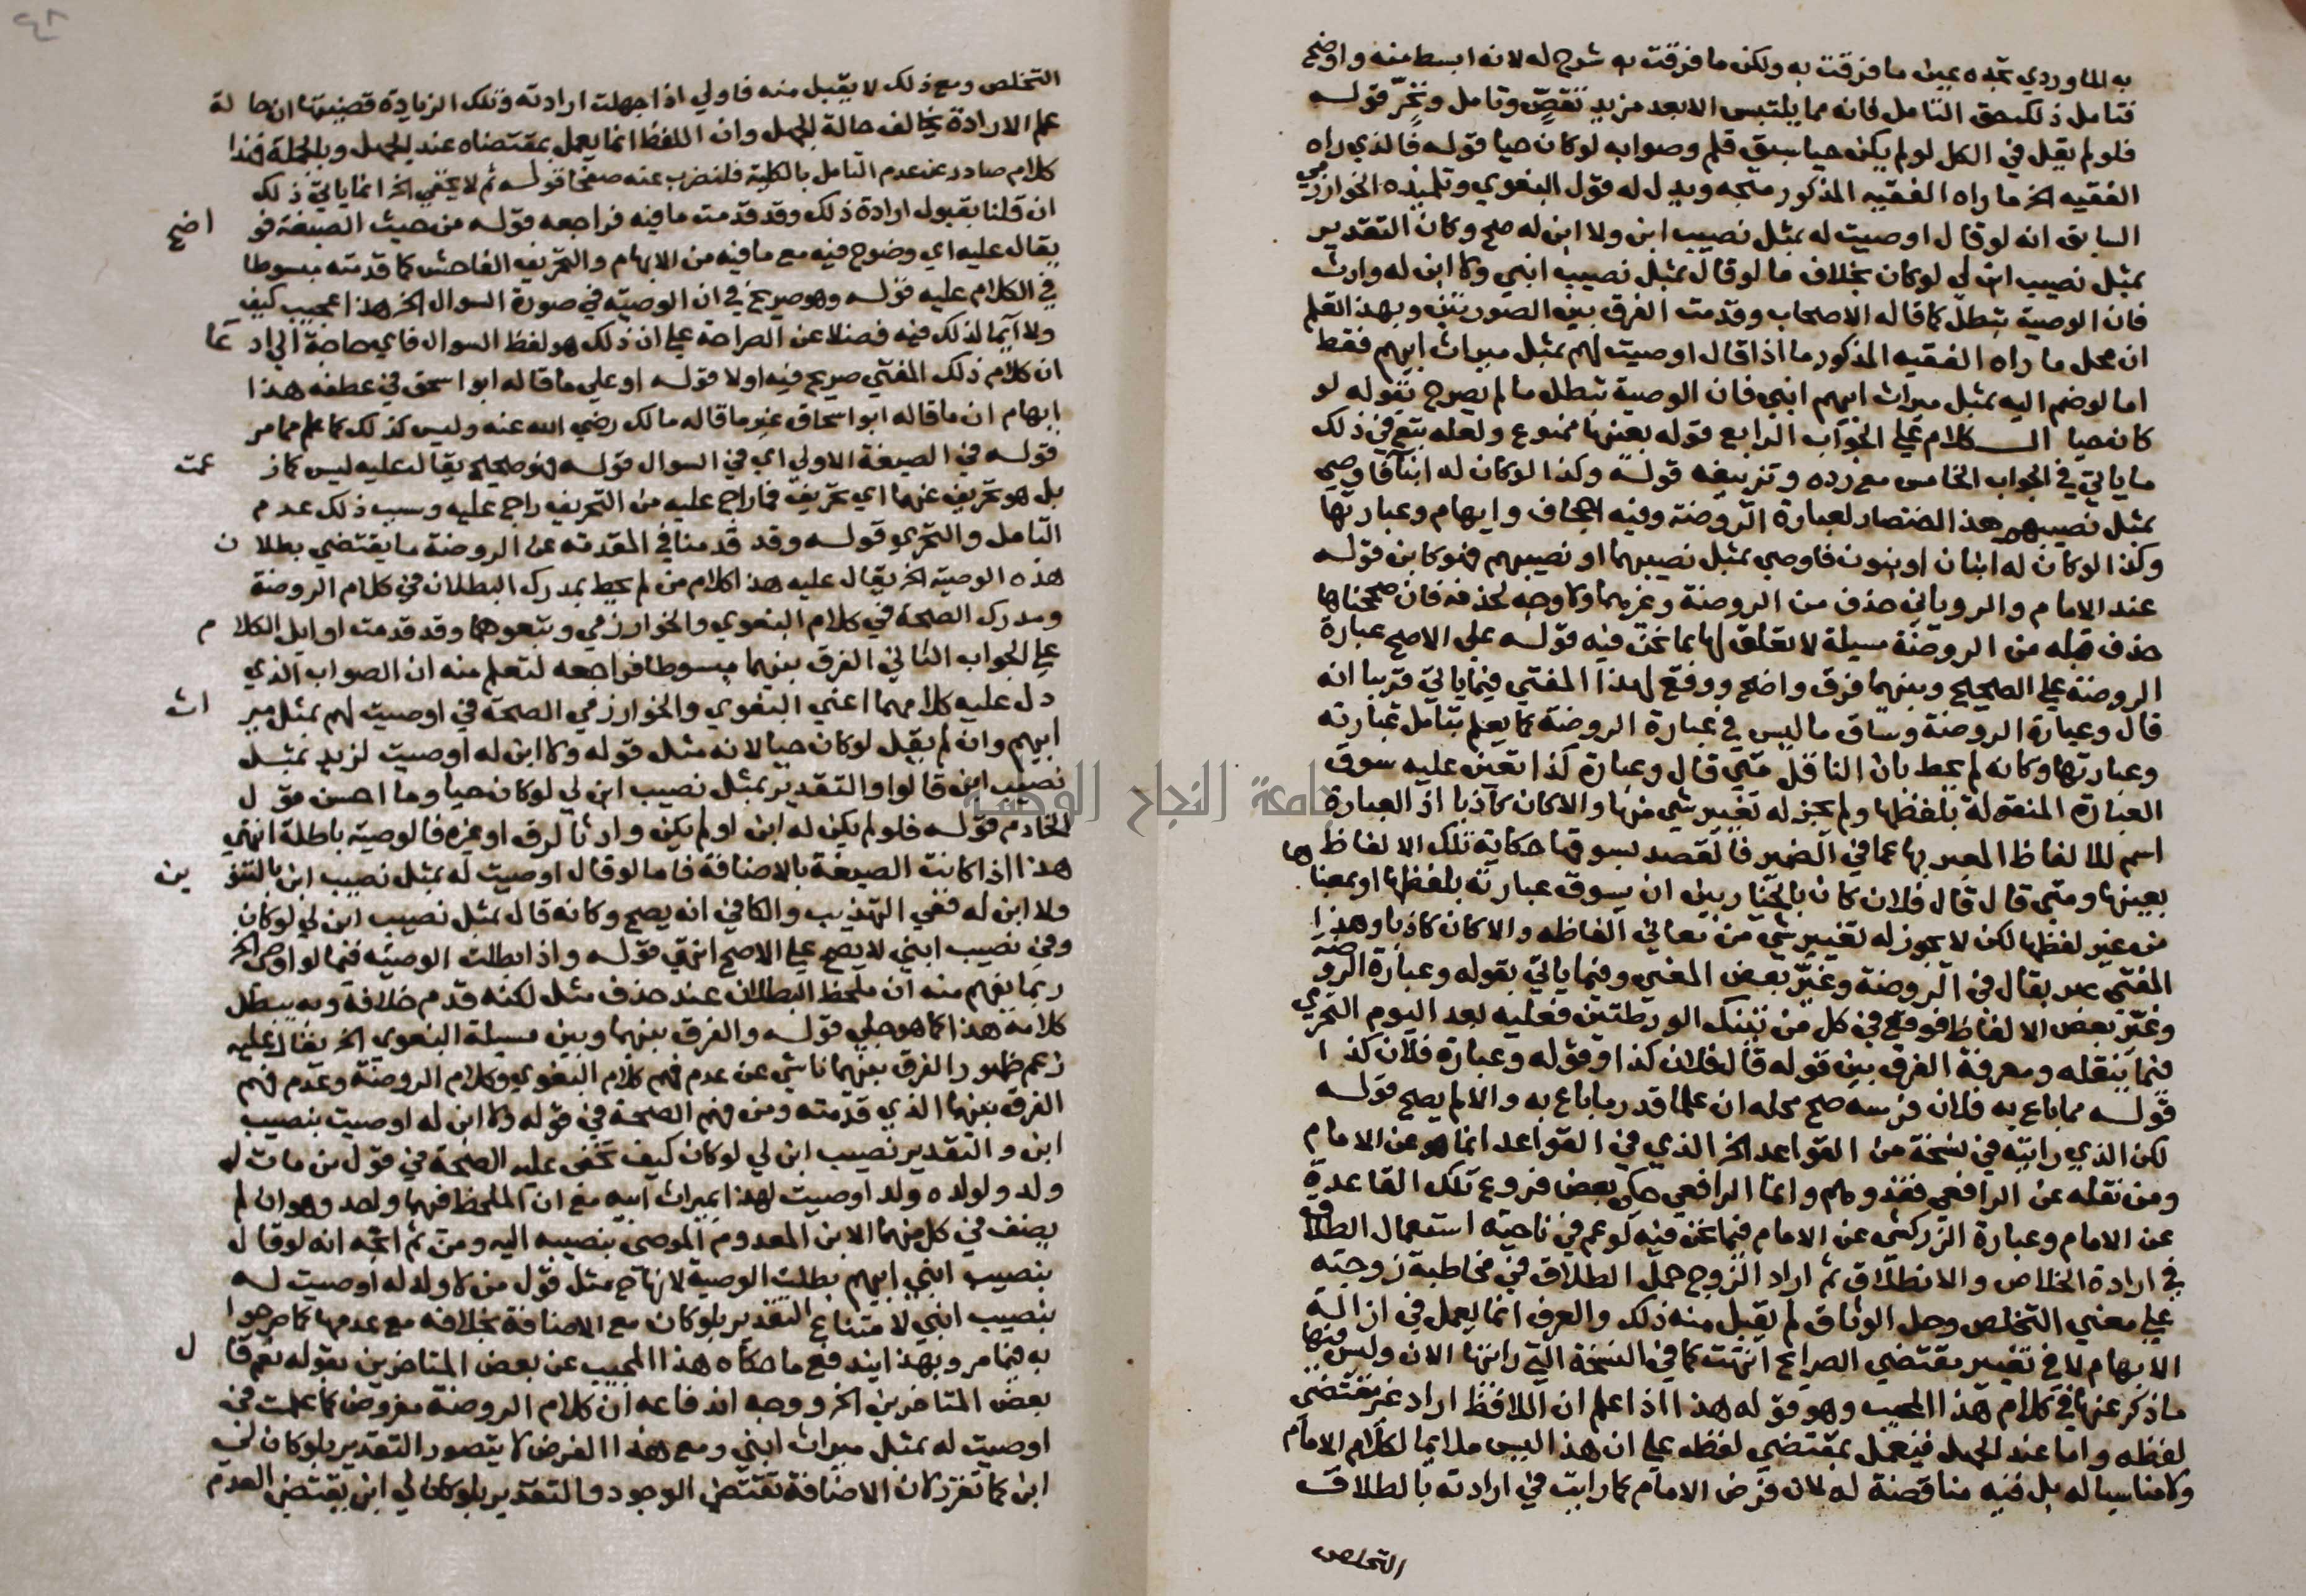 به الماوردي تجده عين ما فرقت به ولكن ما فرقت به شرح له لانه ابسط منه واوضح
فتامل ذلك حق التامل فانه مما يلتبس الا بعد مزيد تفحص وتامل وتحر قوله
فلو لم يقل في الكل لو لم يكن حيا سبق قلم وصوابه لو كان حيا قوله فالذي راه
الفقيه الخ ما راه الفقيه المذكور متجه ويدل له قول البغوي وتلميذه الخوارزمي
السابق انه لو قال اوصيت له بمثل نصيب ابن ولا ابن له صح وكان التقدير
بمثل نصيب ابن لي لو كان بخلاف ما لو قال بمثل نصيب ابني ولا ابن له وارث
فان الوصية تبطل كما قاله الاصحاب وقدمت الفرق بين الصورتين وبهذا تعلم
ان محل ما راه الفقيه المذكور ما اذا قال اوصيت لهم بمثل ميراث ابيهم فقط
اما لو ضم اليه بمثل ميراث ابيهم ابني فان الوصية تبطل ما لم يصرح بقوله لو
كان حيا الكلام على الجواب الرابع قوله بعينها ممنوع ولعله تبع في ذلك
ما ياتي في الجواب الخامس مع رده وتزييفه قوله وكذا لو كان له ابنا فاوصى
بمثل نصيبهم هذا اختصار لعبارة الروضة وفيه اجحاف وايهام وعبارتها
وكذا لو كان له ابنان او بنون فاوصى بمثل نصيبهما او نصيبهم فهو كابن قوله
عند الامام والروياني حذف من الروضة وغيرهما ولا وجه لحذفه فان صححناها
حذف قبله من الروضة مسيلة لا تعلق لها بما نحن فيه قوله على الاصح عبارة
الروضة على الصحيح وبينهما فرق واضح ووقع لهذا المفتي فيما ياتي قريبا انه
قال وعبارة الروضة وساق ما ليس في عبارة الروضة كما يعلم بتامل عبارته
وعبارتها وكانه لم يحط بان الناقل متى قال وعبارة كذا تعين عليه سوق
العبارة المنقولة بلفظها ولم يجز له تغيير شي منها والا كان كاذبا اذ العبارة
اسم للالفاظ المعبر بها عما في الضمير فالقصد بسوقها حكاية تلك الالفاظ
بعينها ومتى قال قال فلان كان بالخيار بين ان يسوق عبارته بلفظها او بمعناها
من غير لفظها لكن لا يجوز له تغيير شي من معاني الفاظه والا كان كاذبا وهذا
المفتي عبر بقال في الروضة وغير بعض المعنى وفيما ياتي بقوله وعبارة الروضة
وغير بعض الالفاظ فوقع في كل من تينك الورطتين فعليه بعد اليوم التحري
فيما ينقله ومعرفة الفرق بين قوله قال فلان كذا وقوله وعبارة فلان كذا
قوله مما باع به فلان فرسه صح محله ان علما قدر ما باع به والا لم يصح قوله
لكن الذي رايته في نسخة من القواعد الخ الذي في القواعد انما هو عن الامام
ومن نقله عن الرافعي فقد وهم وانما الرافعي حكى بعض فروع تلك القاعدة
عن الامام وعبارة الزركشي عن الامام فيما نحن فيه لو عم في ناحيه استعمال الطلاق
في ارادة الخلاص والانطلاق ثم اراد الزوج حمل الطلاق في مخاطبة زوجته
على معنى التخلص وحل الوثاق لم يقبل منه ذلك والعرف انما يعمل في ازالة
الابهام لا في تغيير مقتضى الصرايح انتهت كما في النسخة التي رايتها الان وليس فيها
ما ذكر عنها في كلام هذا المجيب وهو قوله هذا اذا علم ان اللافظ اراد غير مقتضى
لفظه واما عند الجهل فيعمل بمقتضى لفظه على ان هذا ليس ملايما لكلام الامام
ولا مناسبا له بل فيه مناقضة له لان فرض الامام كما رايت في ارادته بالطلاق
التخلص
التخلص ومع ذلك لا يقبل منه فاولي اذا جهلت ارادته وتلك الزيادة قضيتها ان حالة
علم الارادة يخالف حالة الجهل وان اللفظ انما يعمل بمقتضاه عند الجهل وبالجملة فهذا
كلام صادر عن عدم التامل بالكلية فلنضرب عنه صفحا قوله ثم لا يخفى الخ انما ياتي ذلك
ان قلنا بقبول ارادة ذلك وقد قدمت ما فيه فراجعه قوله من حيث الصيغة فواضح
يقال عليه اي وضوح فيه مع ما فيه من الابهام والتحريف الفاحش كما قدمته مبسوطا
في الكلام عليه قوله وهو صريح في ان الوصية في صورة السوال الخ هذا عجيب كيف
ولا ايما لذلك فيه فضلا عن الصراحة على ان ذلك هو لفظ السوال فاي حاجة الى ادعا
ان كلام ذلك المفتي صريح فيه او لا قوله او على ما قاله ابو اسحق في عطفه هذا
ابهام ان ما قاله ابو اسحاق غير ما قاله مالك رضي الله عنه وليس كذلك كما علم مما مر
قوله في الصيغة الاولى اي في السوال قوله فهو صحيح يقال عليه ليس كما زعمت
بل هو تحريف عنها اي تحريف فما راج عليه من التحريف راج عليه وسبب ذلك عدم
التامل والتحري قوله وقد قدمنا في المقدمة عن الروضة ما يقتضي بطلان
هذه الوصية الخ يقال عليه هذا كلام من لم يحط بمدرك البطلان في كلام الروضة
ومدرك الصحة في كلام البغوي والخوارزمي وتبعوهما وقد قدمت اوايل الكلام
على الجواب الثاني الفرق بينهما مبسوطا فراجعه لتعلم منه ان الصواب الذي
دل عليه كلامهما اعني البغوي والخوارزمي الصحة في اوصيت لهم بمثل ميراث
ابيهم وان لم يقل لو كان حيا لانه مثل قوله ولا ابن له اوصيت لزيد بمثل
نصيب ابن قالوا والتقدير بمثل نصيب ابن لي لو كان حيا وما احسن قول
الخادم قوله فلو لم يكن له ابن او لم يكن وارثا لرق او غيره فالوصية باطلة انتهى
هذا اذا كانت الصيغة بالاضافة فاما لو قال اوصيت له بمثل نصيب ابن بالتنوين
ولا ابن له ففي التهذيب والكافي انه يصح وكانه قال بمثل نصيب ابن لي لو كان
وفي نصيب ابني لا يصح على الاصح انتهى قوله واذا بطلت الوصية فيما لو اوصى الخ
ربما يفهم منه ان ملحظ البطلان عند حذف مثل لكنه قدم خلافه وبه يبطل
كلامه هذا كما هو جلي قوله والفرق بينهما وبين مسيلة البغوي الخ يقال عليه
زعم ظهور الفرق بينهما ناشي عن عدم فهم كلام البغوي وكلام الروضة وعدم فهم
الفرق بينها الذي قدمته ومن فهم الصحة في قوله ولا ابن له اوصيت بنصيب
ابن والتقدير نصيب ابن لي لو كان كيف تخفى عليه الصحة في قول من مات له
ولد ولولده ولد اوصيت لهذا بميراث ابيه مع ان الملحظ فيهما واحد وهو ان لم
يضف في كل منهما الابن المعدوم الموصى بنصيبه اليه ومن ثم اتجه انه لو قال
بنصيب ابني ابيهم بطلت الوصية لانها ح مثل قول من لا ولد له اوصيت له
بنصيب ابني لامتناع التقدير بلو كان مع الاضافة بخلافه مع عدمها كما صرحوا
به فيما مر وبهذا يندفع ما حكاه هذا المجيب عن بعض المتاخرين بقوله نعم قال
بعض المتاخرين الخ ووجه اندفاعه ان كلام الروضة مفروض كما علمت في
اوصيت له بمثل ميراث ابني ومع هذا الفرض لا يتصور التقدير بلو كان لي
ابن كما تقرر لان الاضافة تقتضي الوجود والتقدير بلو كان لي ابن يقتضي العدم
جامعة النجاح الوطنية